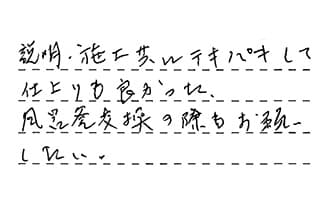 説明・施工共にテキパキして
仕上りも良かった。
風呂釜交換の際もお願い
したい。